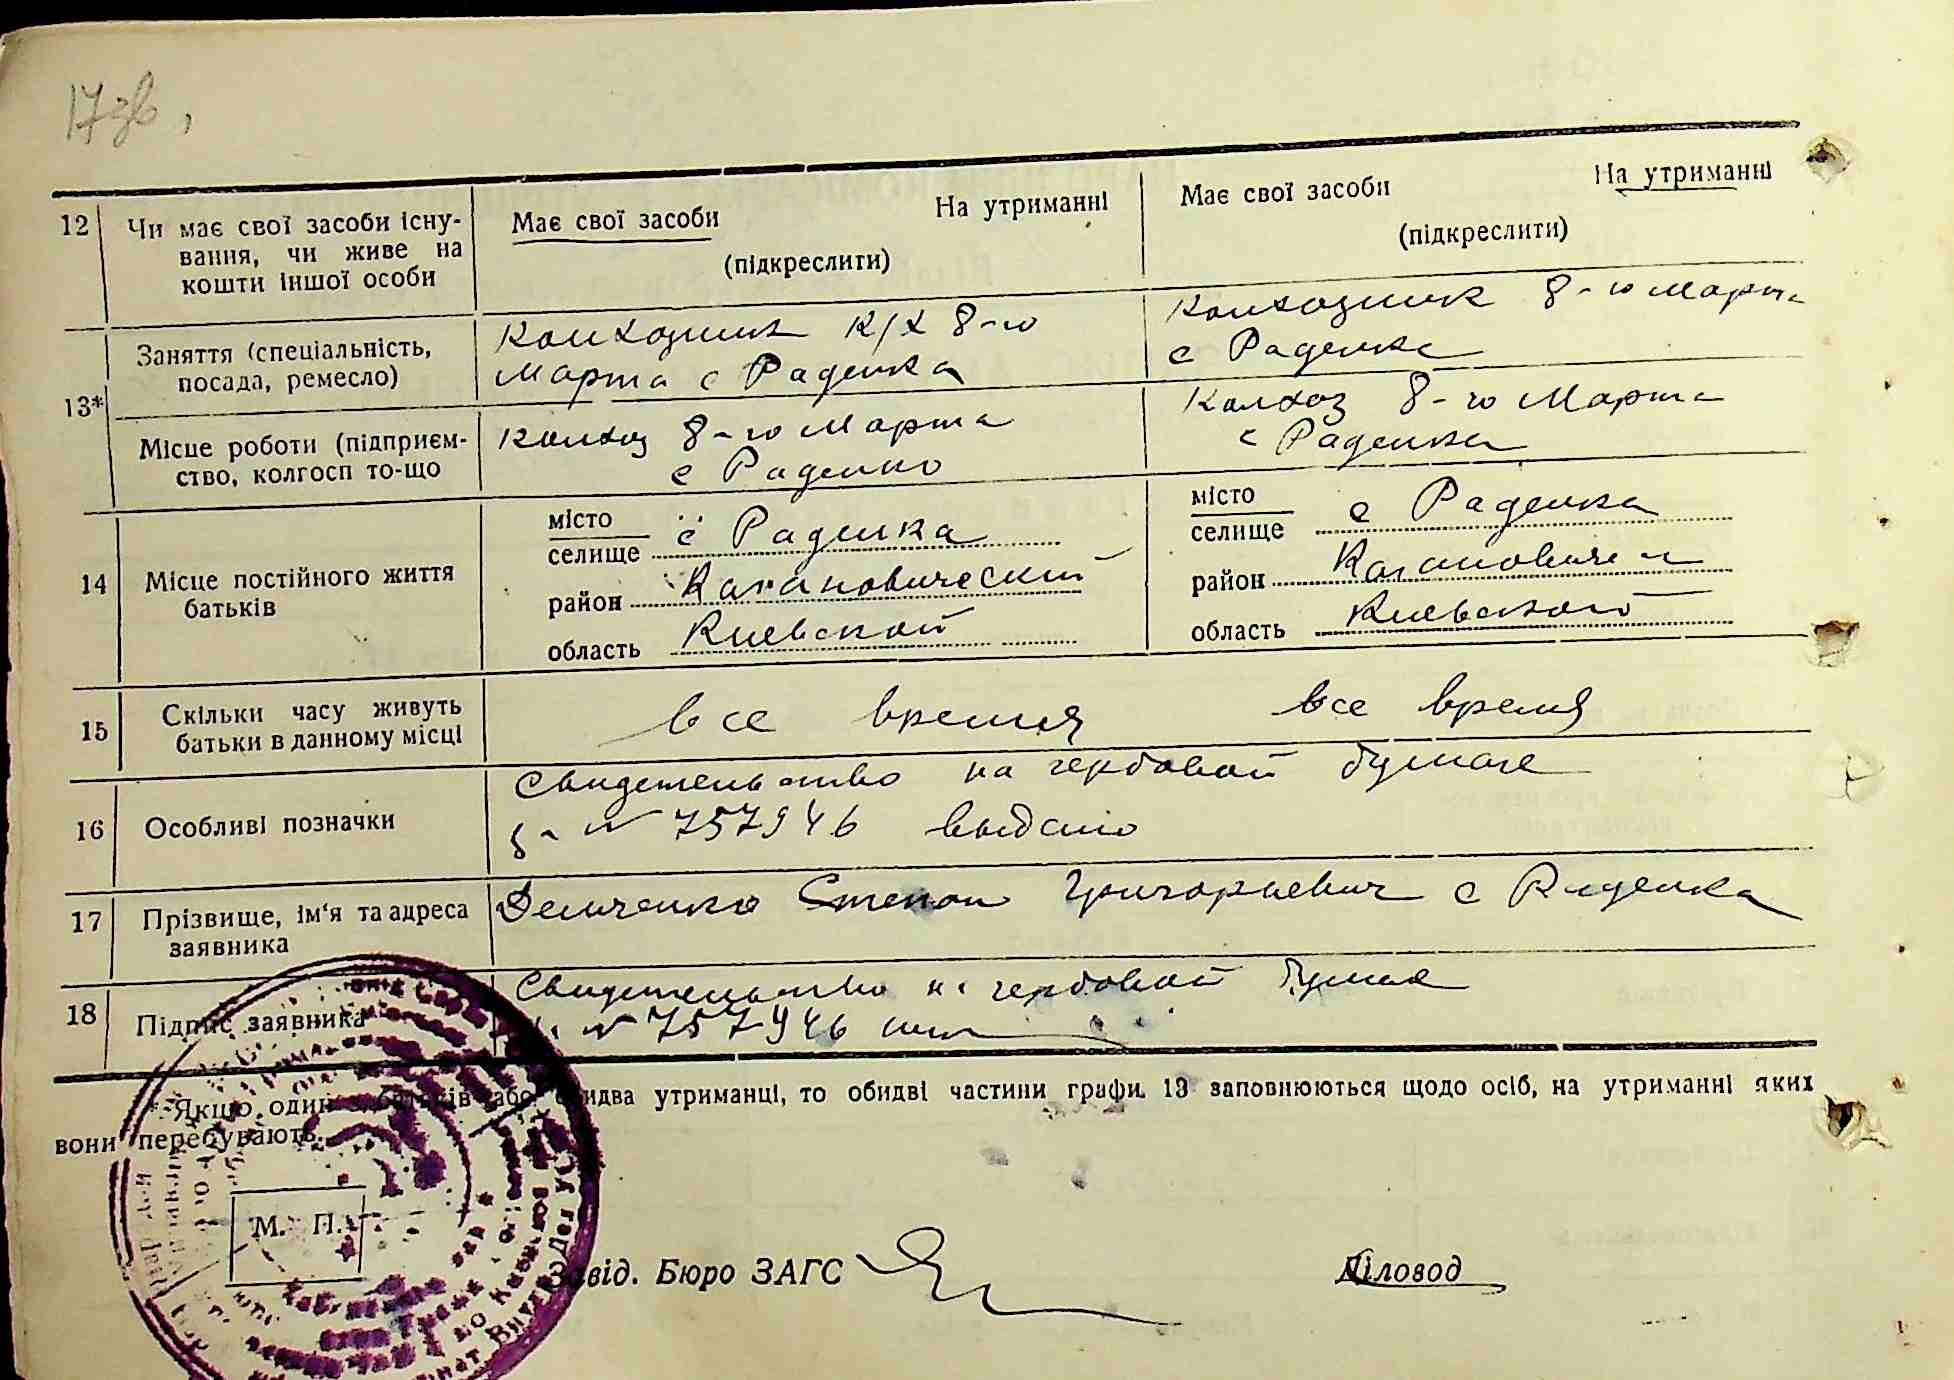 17зв,
12 Чи має свої засоби існу-
вання, чи живе на
кошти іншої особи
Має свої засоби На утриманні
(підкреслити)
Має свої засоби На утриманні
(підкреслити)
13*
Заняття (спеціальність,
посада, ремесло)
Колхозник К/Х 8-го
Марта с Раденка
Колхозник 8-го Марта
с Раденка
Місце роботи (підприєм-
ство, колгосп то-що
Колхоз 8-го Марта
с Раденка
Колхоз 8-го Марта
с Раденка
14 Місце постійного життя
батьків
місто
селище с Раденка
район Кагановический
область Киевской
місто
селище с Раденка
район Каганович
область Киевской
15 Скільки часу живуть
батьки в данному місці
все время все время
16 Особливі позначки
Свидетельство на гербовой бумаге
№ 757946 выдано
17 Прізвище, ім'я та адреса
заявника
Демченко Степан Григорьевич с Раденка
18 Підпис заявника
Свидетельство на гербовой бумаге
№ 757946
* Якщо один з батьків або обидва утриманці, то обидві частини графи 13 заповнюються щодо осіб, на утриманні яких
вони перебувають.
М. П.
Завід. Бюро ЗАГС
Діловод